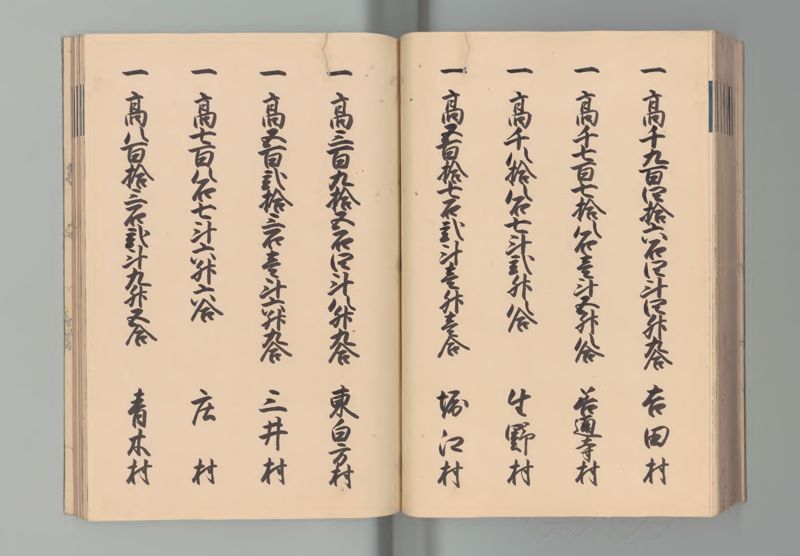 一 高千九百四拾六石四斗四升九合 吉田村
一 高千七百七拾八石壱斗五升八合 善通寺村
一 高千八拾八石七斗弐升八合 生野村
一 高五百拾七石弐斗壱升壱合 堀江村
一 高三百九拾五石四斗八升九合 東白方村
一 高五百弐拾三石壱斗六升九合 三井村
一 高七百八石七斗六升六合 庄村
一 高八百拾三石弐斗九升五合 青木村